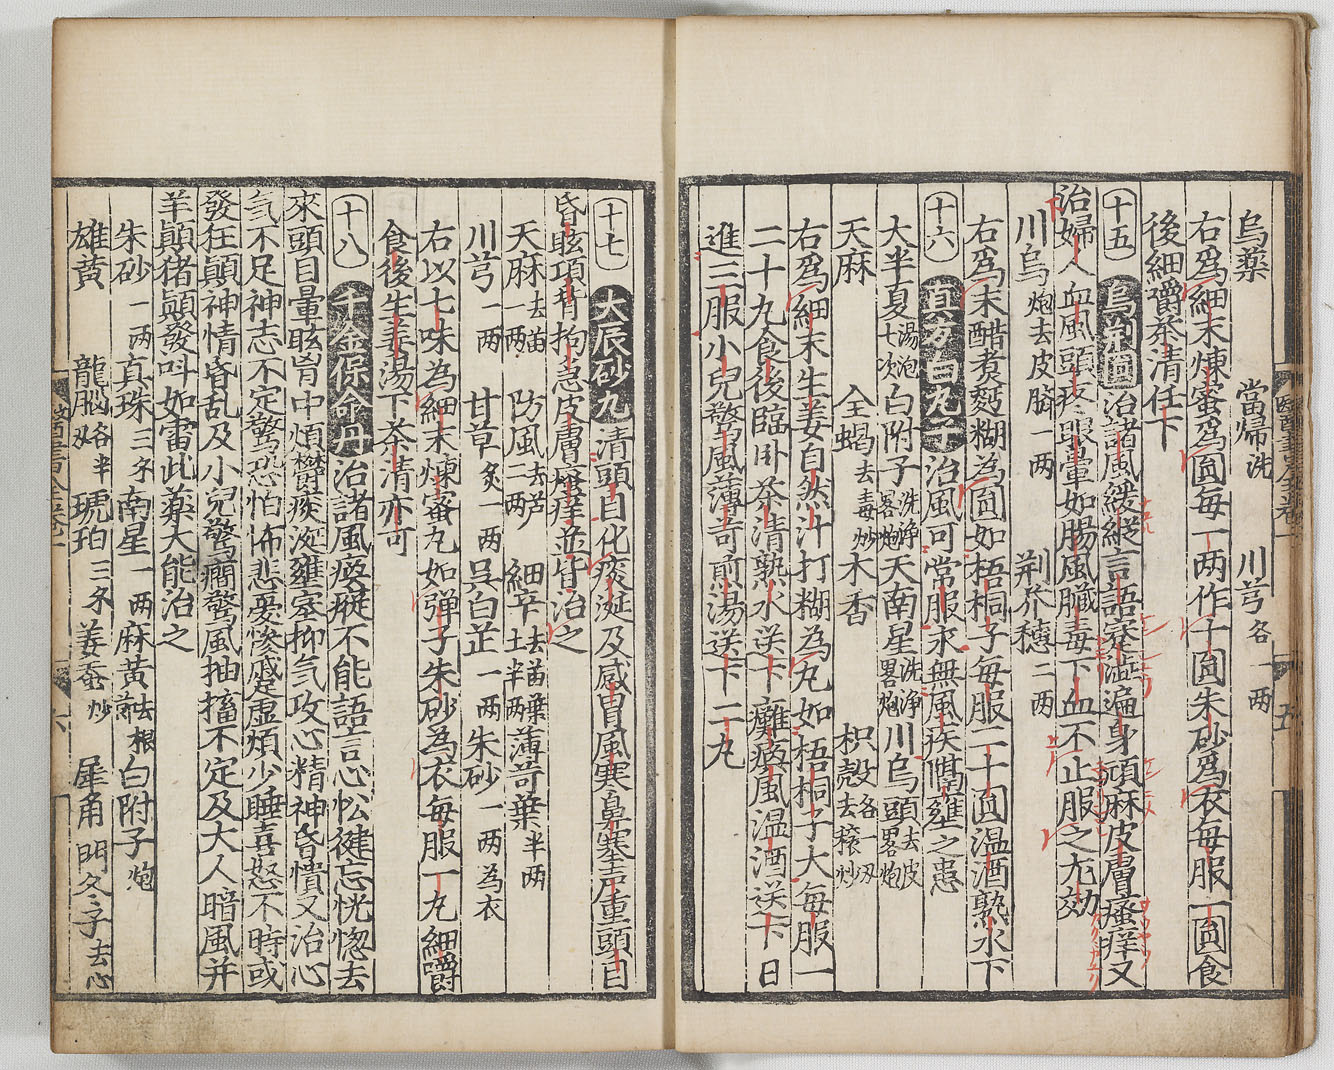 烏藥 當帰洗 川芎各一两
右爲細末煉蜜爲圓每一两作十圓朱砂爲衣每服一圓食
後細嚼茶清任下
十五 烏荊圓 治諸風緩縱言語蹇澁遍身頑麻皮膚瘙痒又
治婦人血風頭疼眼暈如腸風臟毒下血不止服之尤効
川烏炮去皮臍一两 荆芥穗二两
右爲末醋煮麪糊為圓如梧桐子每服二十圓温酒熟水下
十六 真方白丸子 治風可常服永無風疾隔壅之患
大半夏湯泡七次 白附子洗净畧炮 天南星洗净畧炮 川烏頭去皮畧炮
天麻 全蝎去毒炒 木香 枳殻去穣炒各一刄
右爲細末生姜自然汁打糊為丸如梧桐子大每服一
二十丸食後臨卧茶清熟水送下癱瘓風温酒送下日
進三服小兒驚風薄苛煎湯送下二丸
十七 大辰砂丸 清頭目化痰涎及感冒風寒鼻塞声重頭目
昏眩項背拘急皮膚瘙痒並皆治之
天麻去苗一两 防風去芦二两 細辛去苗葉土半两 薄苛葉半两
川芎一两 甘草炙一两 吴白芷一两 朱砂一两為衣
右以七味為細末煉蜜丸如弾子朱砂為衣每服一丸細嚼
食後生姜湯下茶清亦可
十八 千金保命丹 治諸風瘓瘲不能語言心忪健忘恍惚去
來頭目暈眩胷中煩欝痰涎壅塞抑气攻心精神昏憒又治心
气不足神志不定驚恐怕怖悲憂惨慼虚煩少睡喜怒不時或
發狂顛神情昏乱及小兒驚癇驚風抽搐不定及大人暗風并
羊顛猪顛發呌如雷此藥大能治之
朱砂一两 真珠三分 南星一两 麻黄去根節 白附子炮
雄黄 龍脳各半刄 琥珀三分 姜蚕炒 犀角 門冬子去心